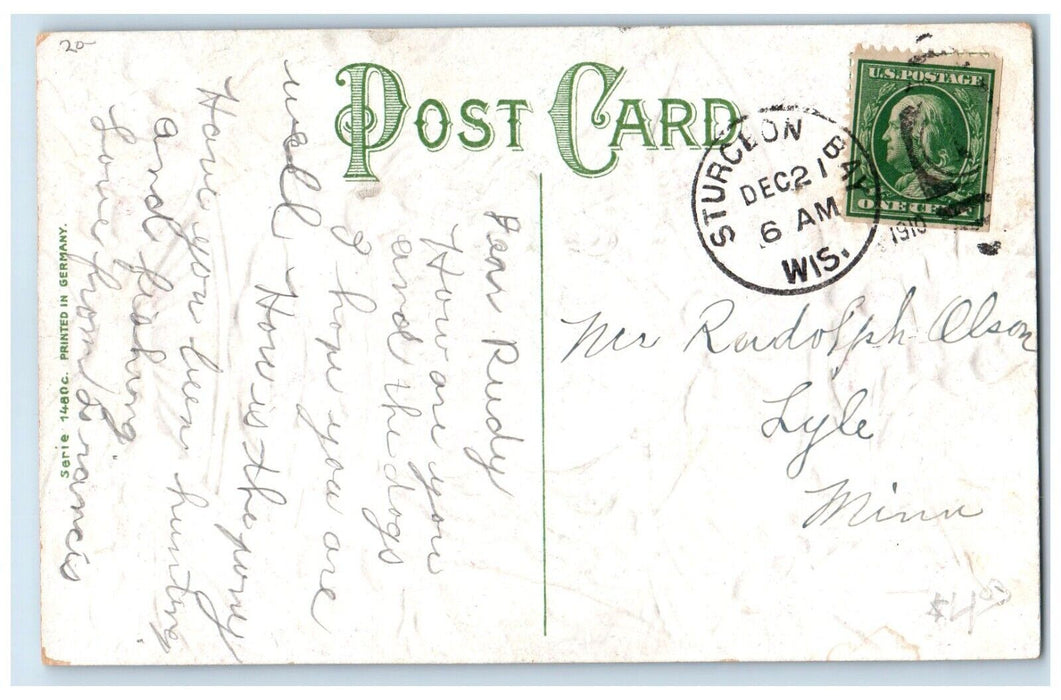 20
POST CARD
U.S. POSTAGE
ONE CENT
STURGEON BAY
DEC 21
6 AM
1910
WIS.
Dear Rudy
How are you
and the dogs
I hope you are
well How is the pony
Have you been hunting
and fishing
Love from Francis
Mr Rudolph Olson
Lyle
Minn
Serie 1480c. PRINTED IN GERMANY.